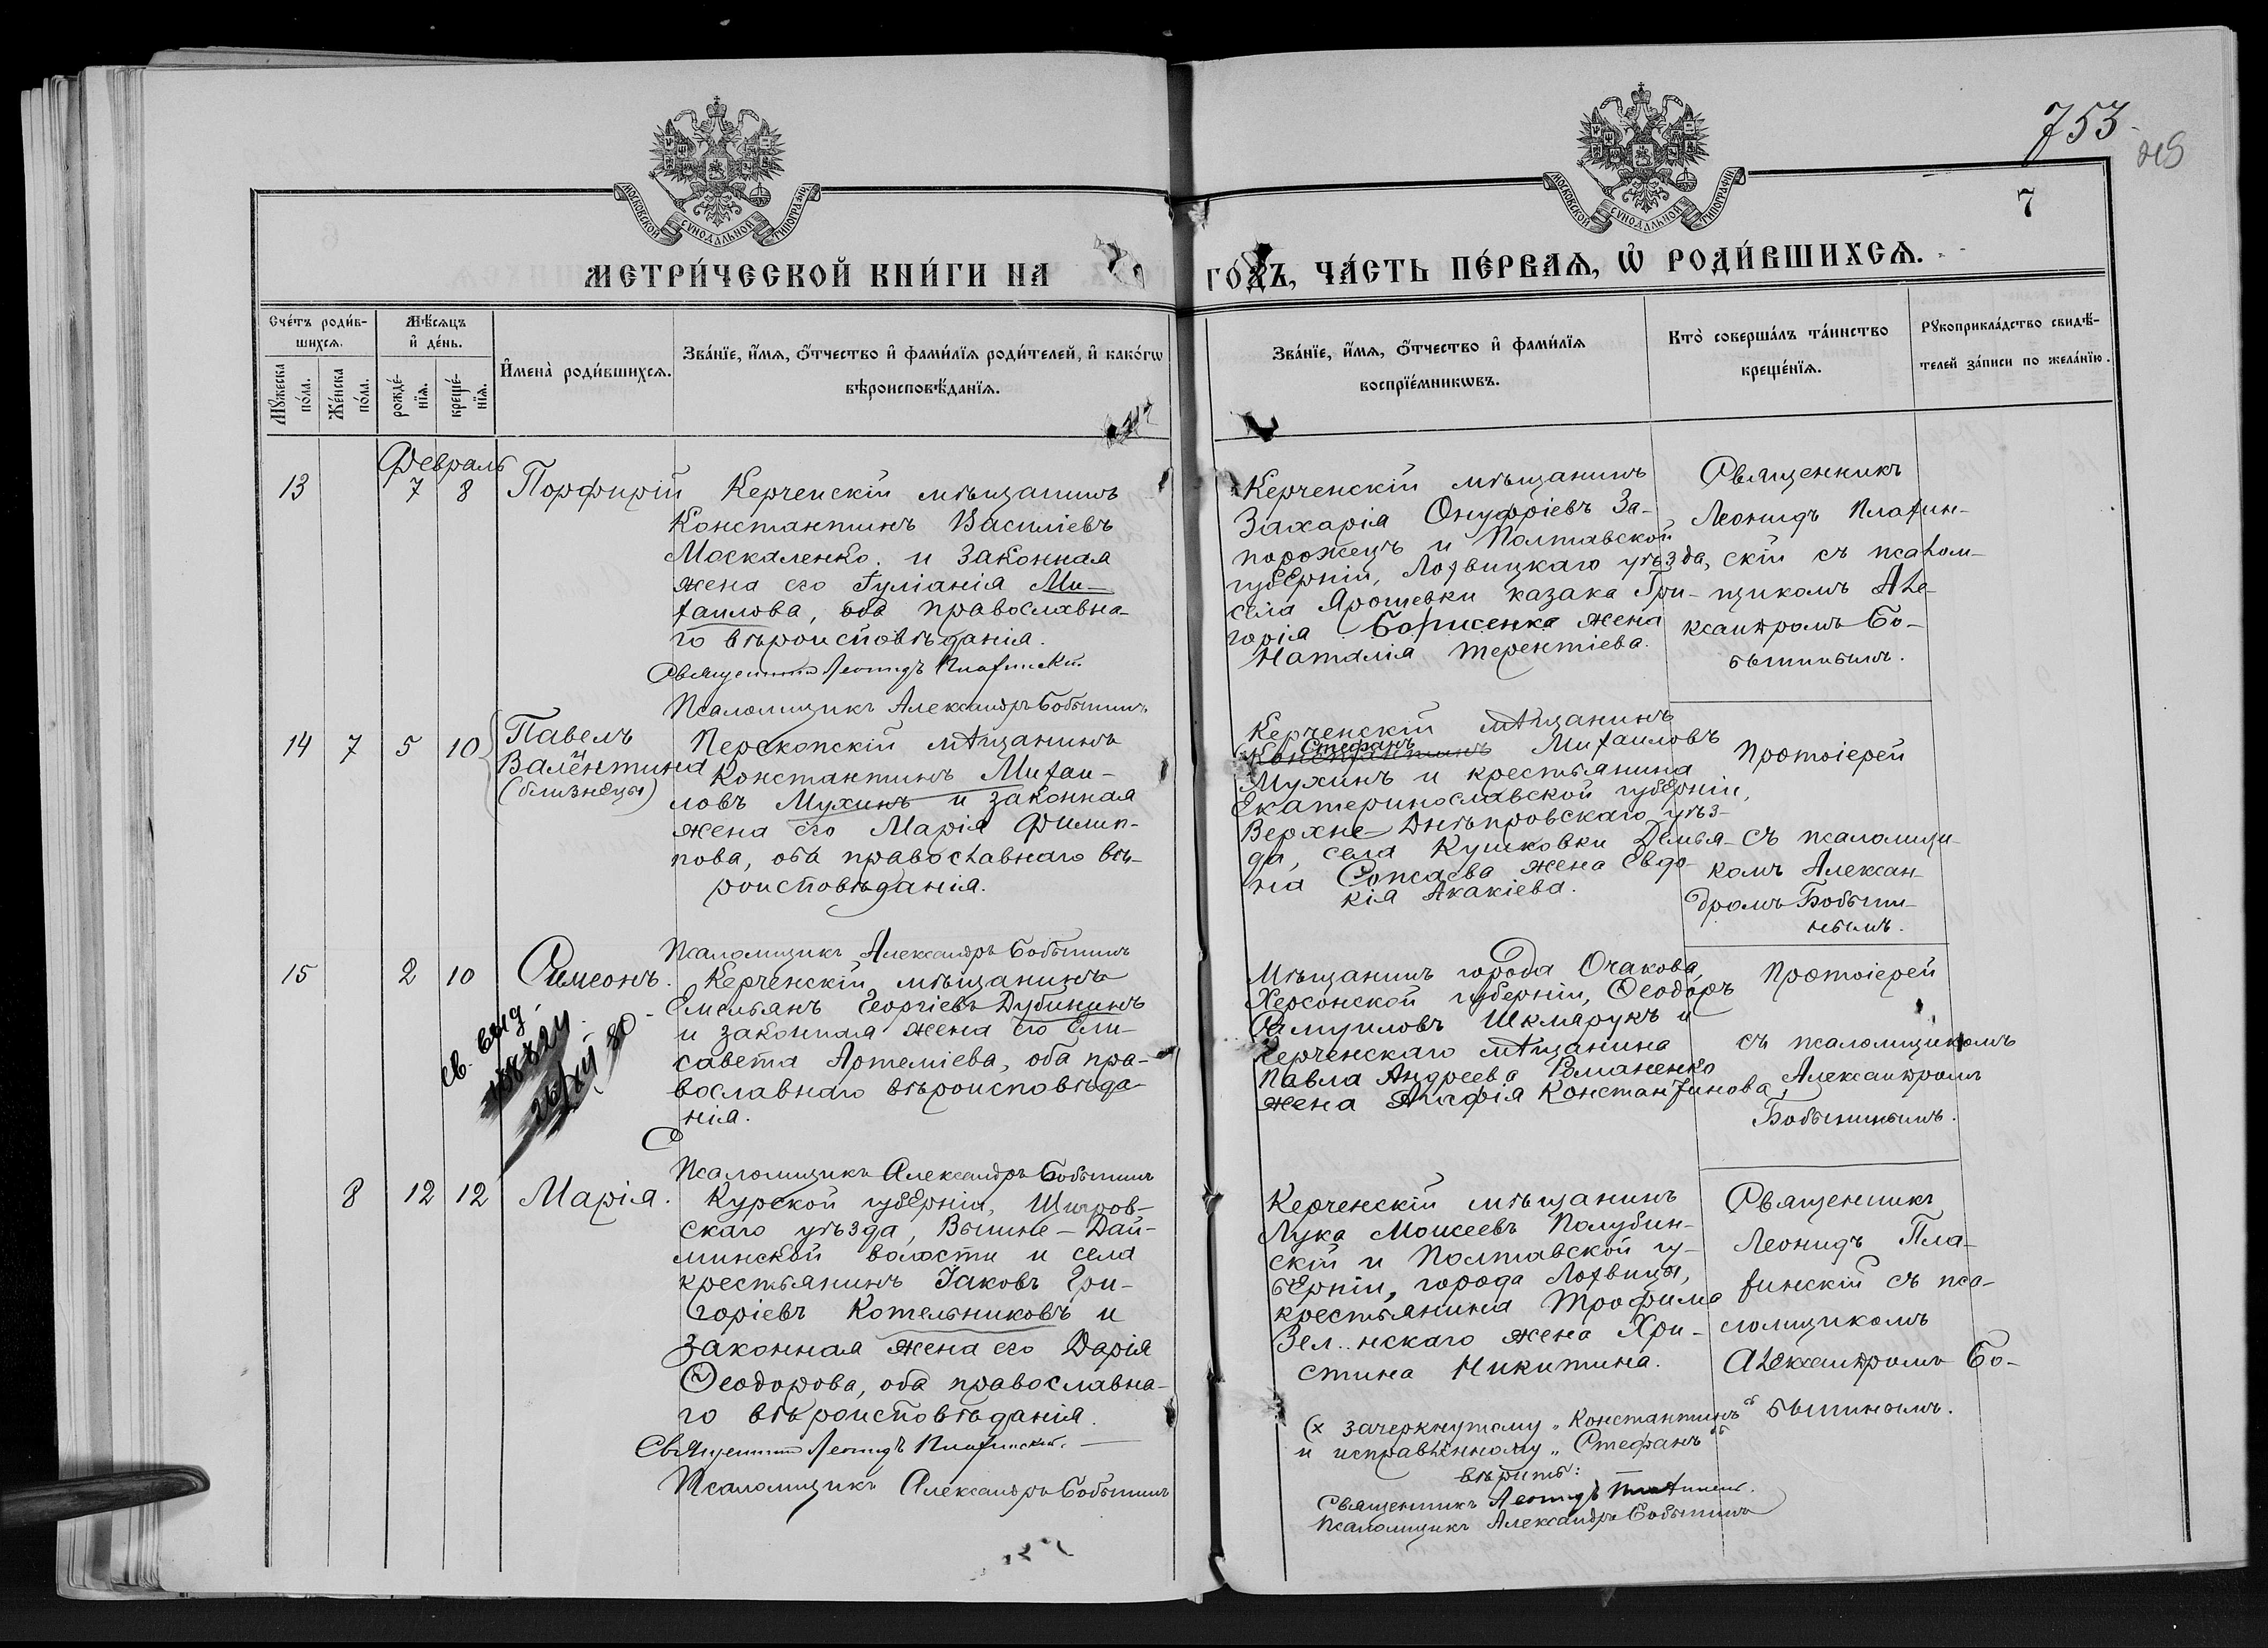 753
7
МОСКОВСКОЙ СѴНОДАЛЬНОЙ ТИПОГРАФІИ
МОСКОВСКОЙ СѴНОДАЛЬНОЙ ТИПОГРАФІИ
МЕТРИ́ЧЕСКОЙ КНИ́ГИ НА
ГО́ДЪ, ЧА́СТЬ ПЕ́РВАѦ, Ѡ҆ РОДИ́ВШИХСѦ.
Сче́тъ роди́в-
шихсѧ.
Мꙋ́жеска по́ла.
Же́нска по́ла.
Мѣ́сѧцъ
и҆ де́нь.
рожде́-
нїѧ.
креще́-
нїѧ.
И҆мена̀ роди́вшихсѧ.
Зва́нїе, и҆́мѧ, ѻ҆́тчество и҆ фами́лїѧ роди́телей, и҆ како́гѡ
вѣроисповѣ́данїѧ.
Зва́нїе, и҆́мѧ, ѻ҆́тчество и҆ фами́лїѧ
воспрїе́мникѡвъ.
Кто̀ соверша́лъ та́инство
креще́нїѧ.
Рꙋкоприкла́дство свидѣ́-
телей за́писи по жела́нїю.
Февраль
13 7 8 Порфирій
Керченскій мѣщанинъ
Константинъ Василіевъ
Москаленко и законная
жена его Іуліанія Ми-
хаилова, оба православна-
го вѣроисповѣданія.
Священникъ Леонидъ Плахинскій.
Псаломщикъ Александръ Бобытинъ
Керченскій мѣщанинъ
Захарія Онуфріевъ За-
порожецъ и Полтавской
губерніи, Лохвицкаго уѣзда,
села Ярошевки казака Гри-
горія Борисенка жена
Наталія Терентіева.
Священникъ
Леонидъ Плахин-
скій съ псалом-
щикомъ Але-
ксандромъ Бо-
бытинымъ.
14 7 5 10 Павелъ
и
Валентина
(близнецы)
Перекопскій мѣщанинъ
Константинъ Михаи-
ловъ Мухинъ и законная
жена его Марія Филип-
пова, оба православнаго вѣ-
роисповѣданія.
Псаломщикъ Александръ Бобытинъ
Керченскій мѣщанинъ
Стефанъ
Константинъ Михаиловъ
Мухинъ и крестьянина
Екатеринославской губерніи,
Верхне-Днѣпровскаго уѣз-
да, села Кушковки Демья-
на жена Евдо-
кія Акакіева.
Протоіерей
съ псаломщи-
комъ Алексан-
дромъ Бобыти-
нымъ.
15 2 10 Симеонъ.
св. выд.
Керченскій мѣщанинъ
Емельянъ Георгіевъ Дубининъ
и законная жена его Ели-
савета Артеміева, оба пра-
вославнаго вѣроисповѣда-
нія.
Псаломщикъ Александръ Бобытинъ
Мѣщанинъ города Очакова,
Херсонской губерніи, Ѳеодоръ
Самуиловъ Шкмарукъ и
Керченскаго мѣщанина
Павла Андреева Романенко
жена Агафія Константинова,
Протоіерей
съ псаломщикомъ
Александромъ
Бобытинымъ.
8 12 12 Марія.
Курской губерніи, Щигров-
скаго уѣзда, Вышне-Дай-
минской волости и села
крестьянинъ Іаковъ Гри-
горіевъ Котельниковъ и
законная жена его Дарія
Ѳеодорова, оба православна-
го вѣроисповѣданія.
Священникъ Леонидъ Плахинскій.
Псаломщикъ Александръ Бобытинъ
Керченскій мѣщанинъ
Лука Моисеевъ Полубин-
скій и Полтавской гу-
берніи, города Лохвицы,
крестьянина Трофима
Зел..нскаго жена Хри-
стина Никитина.
Священникъ
Леонидъ Пла-
хинскій съ пса-
ломщикомъ
Александромъ Бо-
бытинымъ.
(х зачеркнутому „Константинъ“
и исправленному „Стефанъ“
вѣрить:
Священникъ Леонидъ Плахинскій.
Псаломщикъ Александръ Бобытинъ